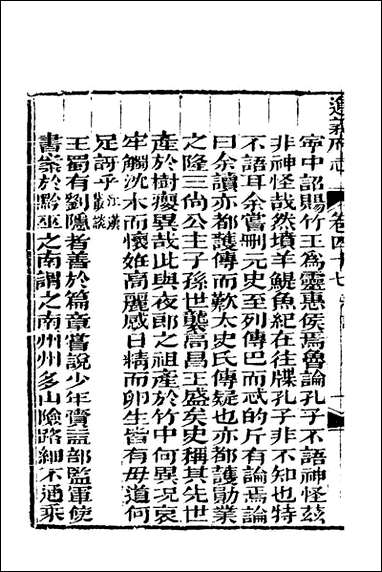 遵義府志 卷四十七
寧中詔賜竹王為靈惠侯焉魯論孔子不語神怪茲
非神怪哉然墳羊鯷魚紀在往牒孔子非不知也特
不語耳余嘗刪元史至列傳巴而忒的斤有論焉論
曰余讀亦都護傳而歎太史氏傳疑也亦都護勛業
之隆三尚公主子孫世襲高昌王盛矣史稱其先世
產於樹癭異哉此與夜郎之祖產於竹中何異況哀
牢觸沈木而懷姙高麗感日精而卵生皆有毋道何
足訝乎 江漢叢談
王蜀有劉隱者善於篇章嘗說少年賫益部監軍使
書索於黔巫之南謂之南州州多山險路細不通乘